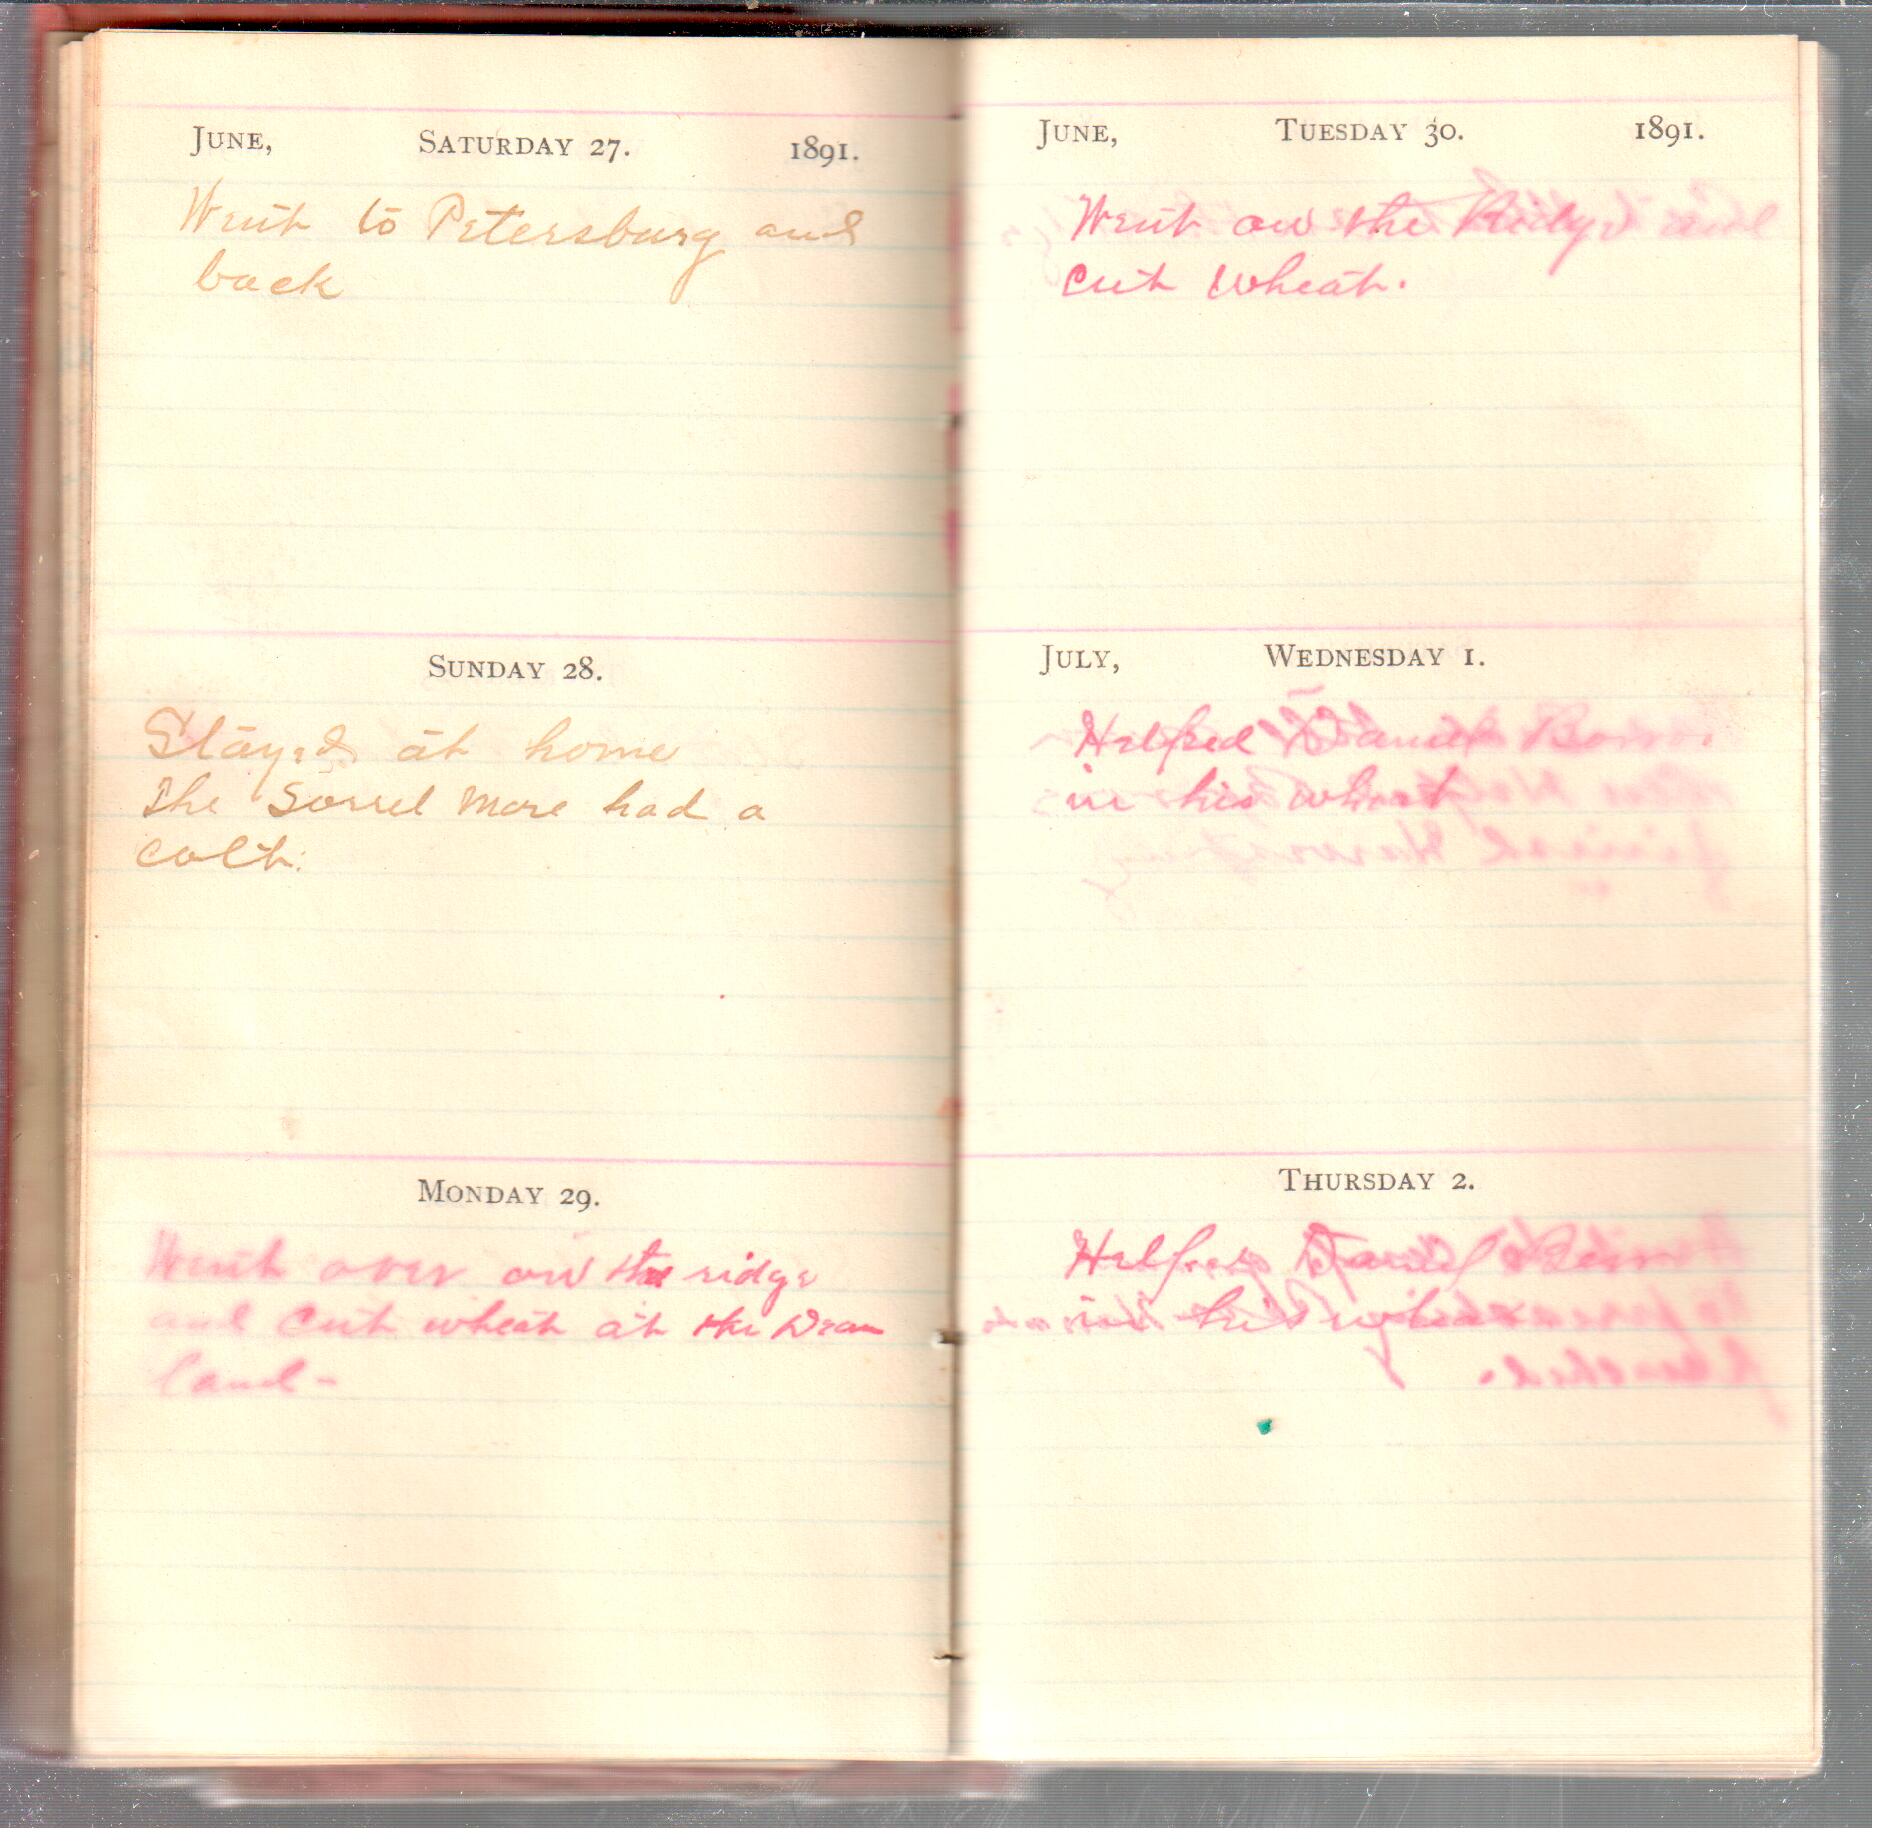 JUNE, SATURDAY 27. 1891.
Went to Petersburg and
back
SUNDAY 28.
Stayed at home
The Sorrel Mare had a
colt.
MONDAY 29.
Went over on the ridge
and cut wheat at the
land-
JUNE, TUESDAY 30. 1891.
Went on the Ridge and
cut wheat.
JULY, WEDNESDAY 1.
Helped Daniel
in his wheat
THURSDAY 2.
Helped Daniel
in his wheat